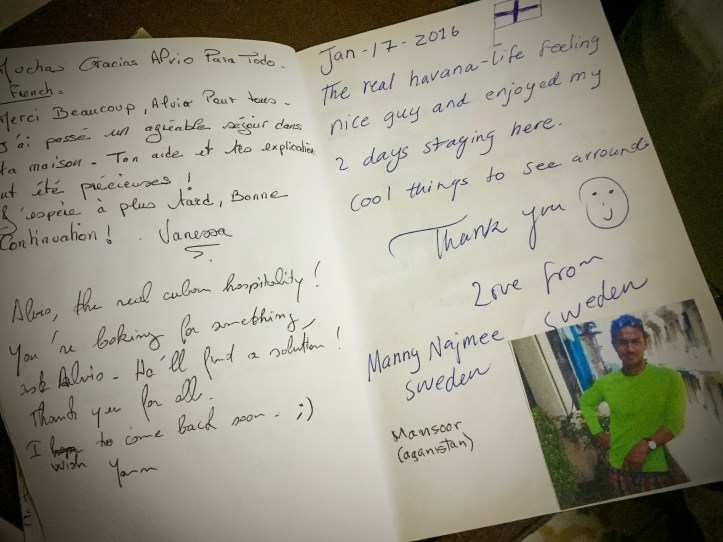 Muchas Gracias Alvio Para Todo.
French.
Merci Beaucoup, Alvio Pour tous.
J'ai passé un agréable séjour dans
ta maison. Ton aide et tes explication
ont été précieuses!
J'espère à plus tard, Bonne
Continuation! Vanessa
Alvio, the real cuban hospitality!
You're looking for something,
ask Alvio. He'll find a solution!
Thank you for all.
I to come back soon. ;)
wish Yann
Jan-17-2016
The real havana-life feeling
nice guy and enjoyed my
2 days staging here.
Cool things to see arround
Thank you
Love from
Sweden
Manny Najmee
Sweden
Mansoor
(aganistan)